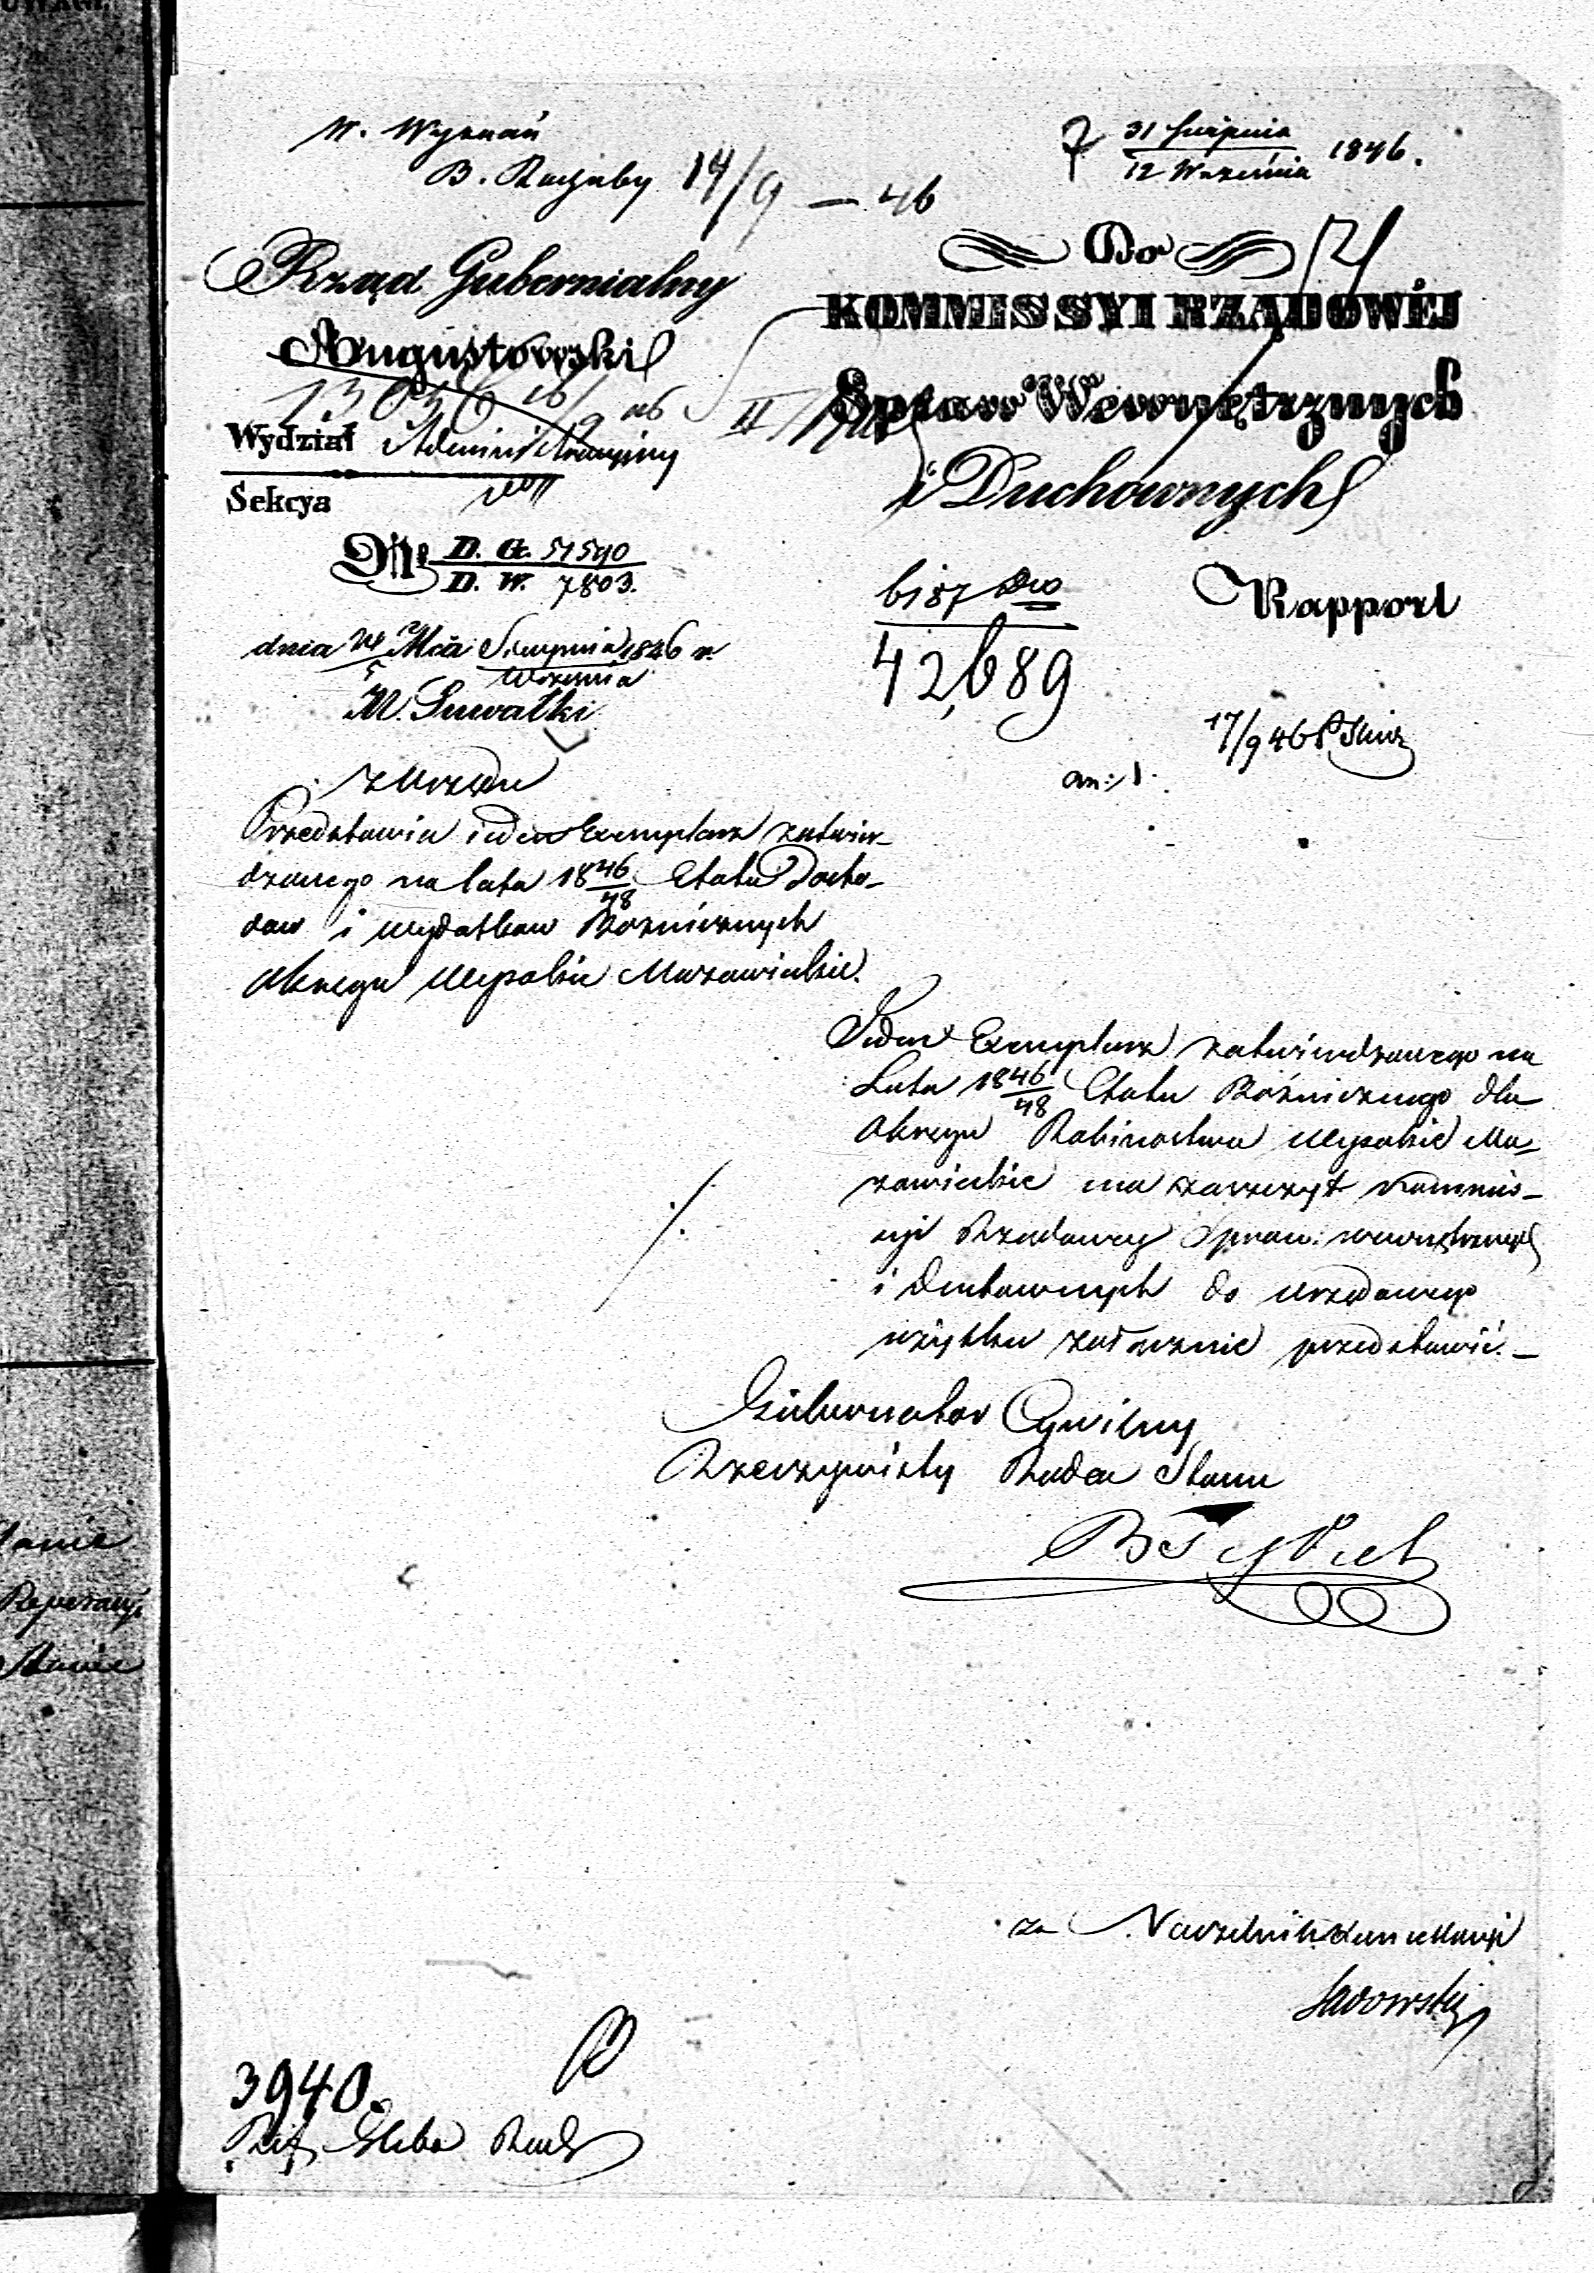 W. Wyznań
B.
14/9 — 46
31 Sierpnia
12 Września 1846.
Rząd Gubernialny
Augustowski
Wydział Administracyjny
Sekcya
№ D. G. 51590
D. W. 7803.
dnia 24 Mca Sierpnia 1846 r.
5 Września
M. Suwałki
Do
KOMMISSYI RZĄDOWÉJ
Spraw Wewnętrznych
i Duchownych
Rapport
6187
42,689
17/9 46
an: 1.
z Urzędu
Przedstawia ieden Exemplarz zatwier-
dzonego na lata 1846/48 Etatu Docho-
dow i wydatkow Bożnicznych
Okręgu Wysokie Mazowieckie.
Jeden Exemplarz zatwierdzonego na
Lata 1846/48 Etatu Bóżnicznego dla
Okręgu Rabinostwa Wysokie Ma-
zowieckie ma zaszczyt Kommis-
syi Rządowey Spraw: wewnętrznych
i Duchownych do urzędowego
użytku załącznie przedstawić. —
Gubernator Cywilny
Rzeczywisty Radca Stanu
za Naczelnik Kancellaryi
Sadowski
3940.